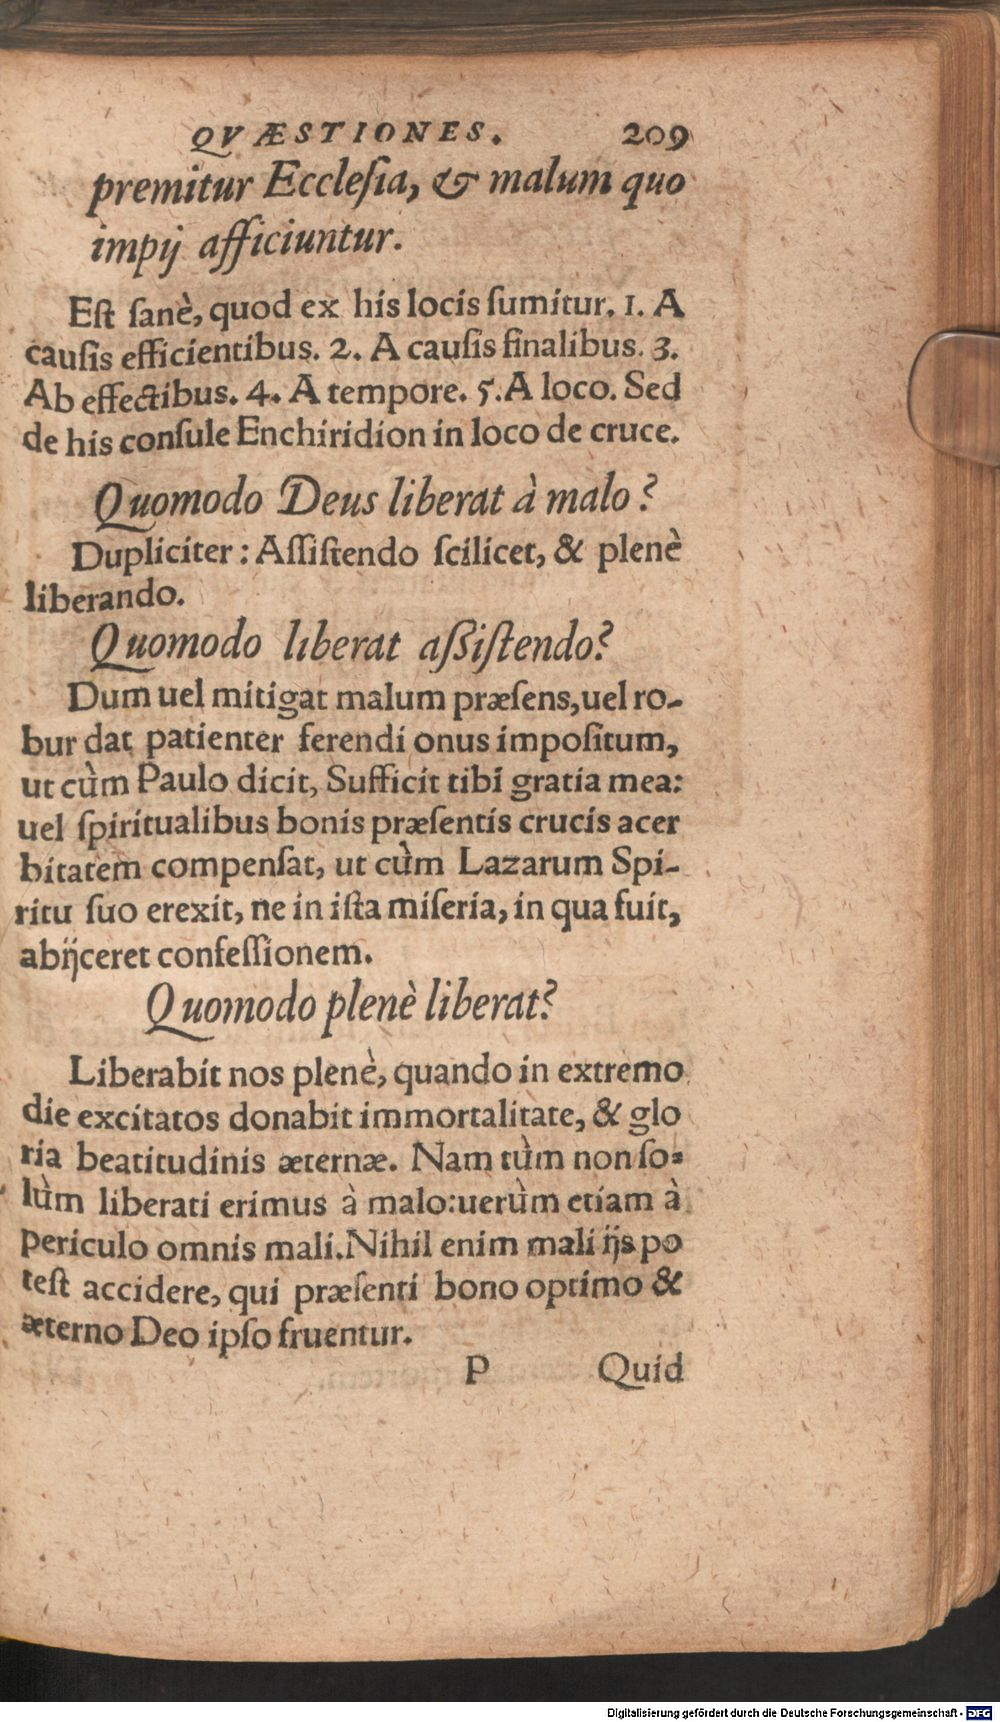 QVÆSTIONES. 209
premitur Eccleſia, & malum quo
impij afficiuntur.
Eſt ſanè, quod ex his locis ſumitur. 1. A
cauſis efficientibus. 2. A cauſis finalibus. 3.
Ab effectibus. 4. A tempore. 5. A loco. Sed
de his conſule Enchiridion in loco de cruce.
Quomodo Deus liberat à malo?
Dupliciter: Aſſiſtendo ſcilicet, & plenè
liberando.
Quomodo liberat aſßiſtendo?
Dum uel mitigat malum præſens, uel ro-
bur dat patienter ferendi onus impoſitum,
ut cùm Paulo dicit, Sufficit tibi gratia mea:
uel ſpiritualibus bonis præſentis crucis acer
bitatem compenſat, ut cùm Lazarum Spi-
ritu ſuo erexit, ne in iſta miſeria, in qua fuit,
abijceret confeſſionem.
Quomodo plenè liberat?
Liberabit nos plenè, quando in extremo
die excitatos donabit immortalitate, & glo
ria beatitudinis æternæ. Nam tùm non ſo-
lùm liberati erimus à malo: uerùm etiam à
periculo omnis mali. Nihil enim mali ijs po
teſt accidere, qui præſenti bono optimo &
æterno Deo ipſo fruentur.
P Quid
Digitalisierung gefördert durch die Deutsche Forschungsgemeinschaft - DFG